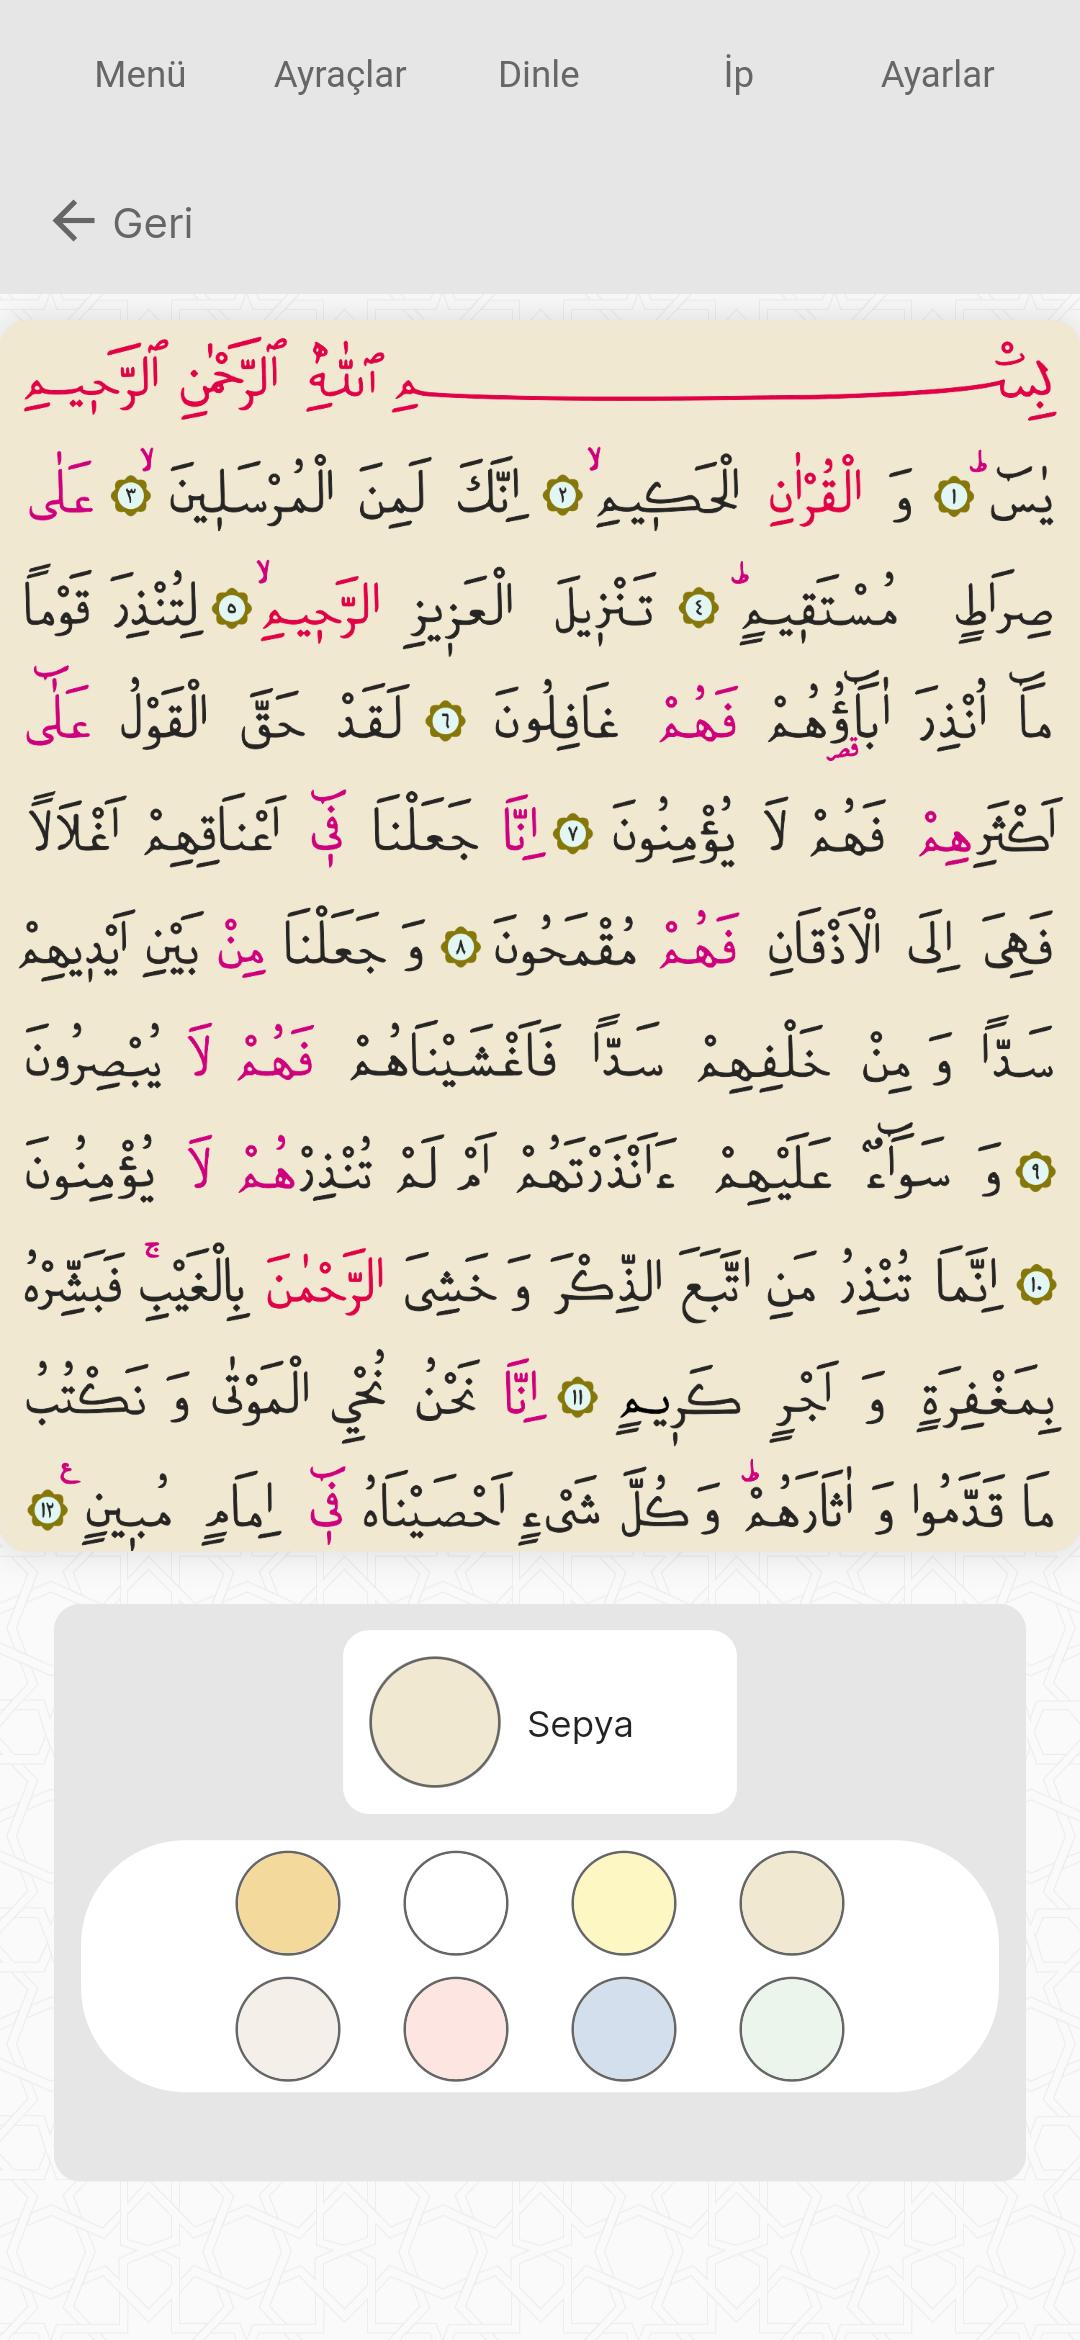 Menü Ayraçlar Dinle İp Ayarlar
Geri
بِسْمِ ٱللّٰهِ ٱلرَّحْمٰنِ ٱلرَّح۪يمِ
يٰسٓ ۜ ﴿١﴾ وَ الْقُرْاٰنِ الْحَك۪يمِۙ ﴿٢﴾ اِنَّكَ لَمِنَ الْمُرْسَل۪ينَۙ ﴿٣﴾ عَلٰى
صِرَاطٍ مُسْتَق۪يمٍۜ ﴿٤﴾ تَنْز۪يلَ الْعَز۪يزِ الرَّح۪يمِۙ ﴿٥﴾ لِتُنْذِرَ قَوْماً
مَٓا اُنْذِرَ اٰبَٓاؤُ۬هُمْ فَهُمْ غَافِلُونَ ﴿٦﴾ لَقَدْ حَقَّ الْقَوْلُ عَلٰٓى
اَكْثَرِهِمْ فَهُمْ لَا يُؤْمِنُونَ ﴿٧﴾ اِنَّا جَعَلْنَا ف۪ٓي اَعْنَاقِهِمْ اَغْلَالاً
فَهِيَ اِلَى الْاَذْقَانِ فَهُمْ مُقْمَحُونَ ﴿٨﴾ وَ جَعَلْنَا مِنْ بَيْنِ اَيْد۪يهِمْ
سَداًّ وَ مِنْ خَلْفِهِمْ سَداًّ فَاَغْشَيْنَاهُمْ فَهُمْ لَا يُبْصِرُونَ
﴿٩﴾ وَ سَوَٓاءٌ عَلَيْهِمْ ءَاَنْذَرْتَهُمْ اَمْ لَمْ تُنْذِرْهُمْ لَا يُؤْمِنُونَ
﴿١٠﴾ اِنَّمَا تُنْذِرُ مَنِ اتَّبَعَ الذِّكْرَ وَ خَشِيَ الرَّحْمٰنَ بِالْغَيْبِۚ فَبَشِّرْهُ
بِمَغْفِرَةٍ وَ اَجْرٍ كَر۪يمٍ ﴿١١﴾ اِنَّا نَحْنُ نُحْيِ الْمَوْتٰى وَ نَكْتُبُ
مَا قَدَّمُوا وَ اٰثَارَهُمْۜ وَ كُلَّ شَيْءٍ اَحْصَيْنَاهُ ف۪ٓي اِمَامٍ مُب۪ينٍ ع ﴿١٢﴾
Sepya